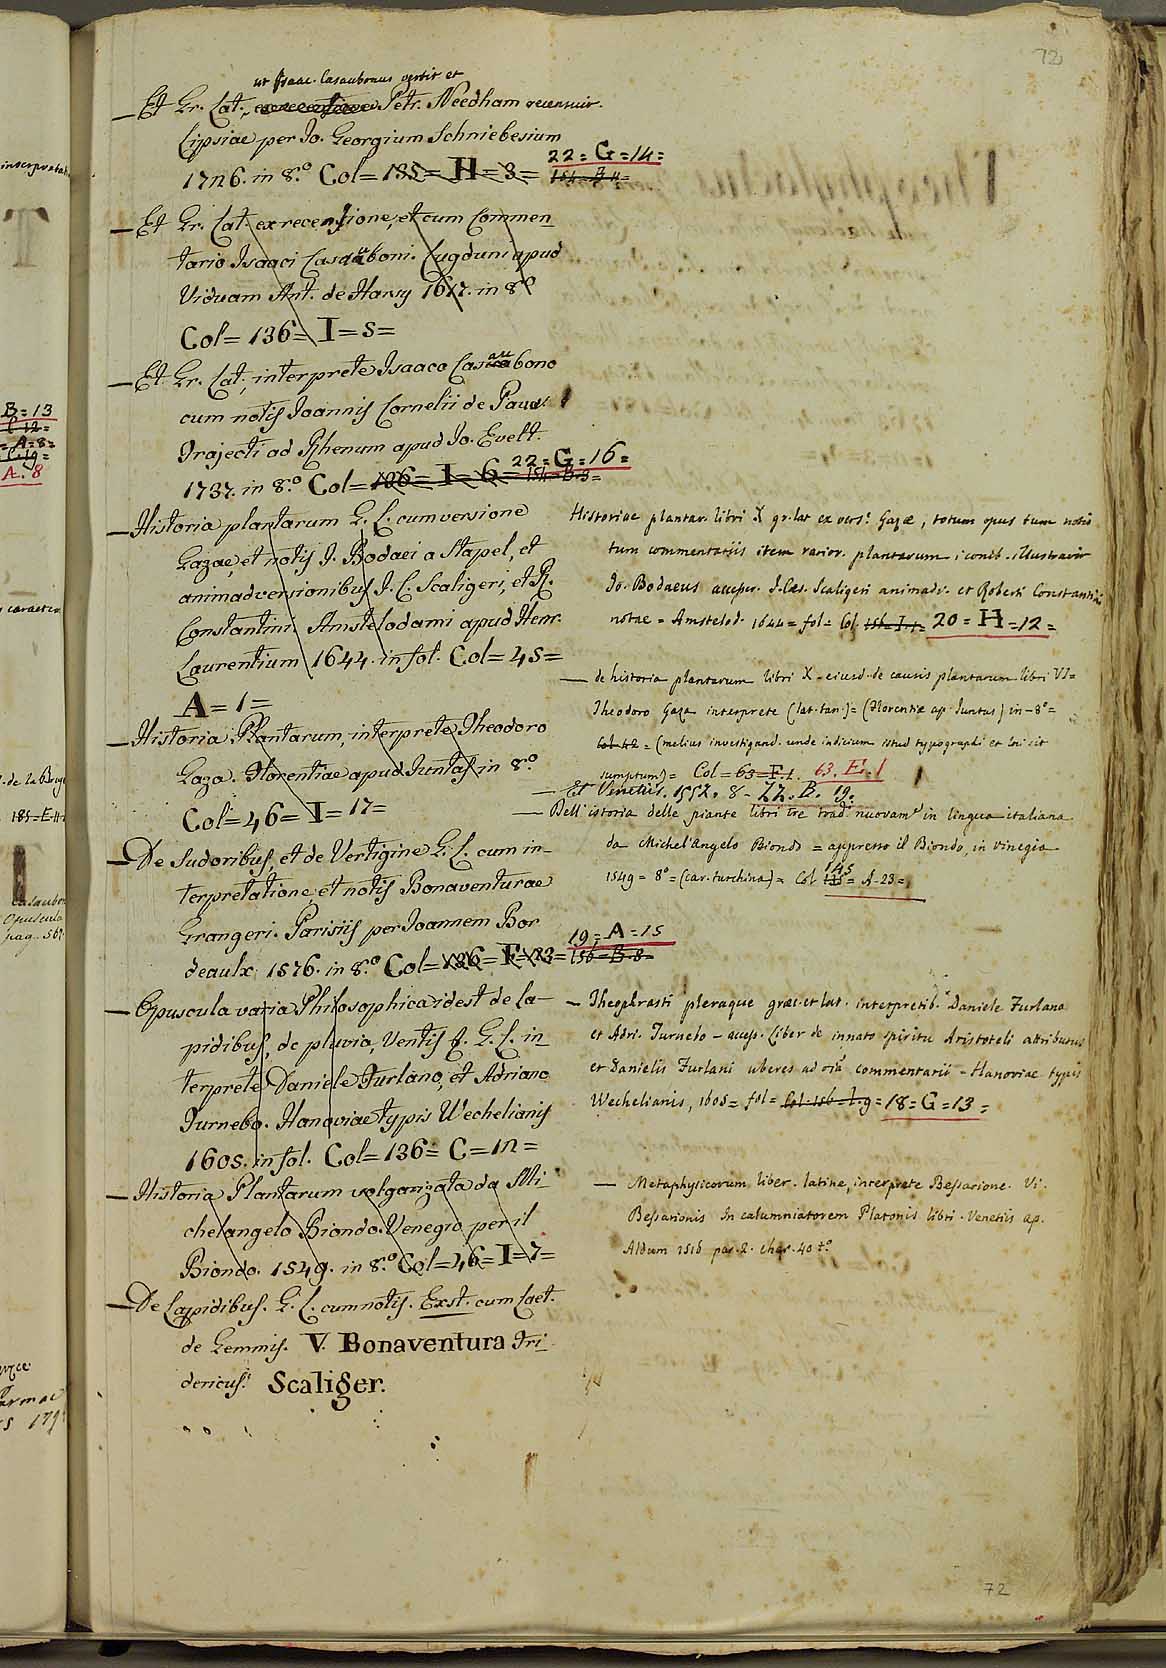 72
ut Isaac. Casaubonus vertit et
— Et Gr. Lat., ex recensione Petr. Needham recensuit.
Lipsiae per Jo. Georgium Schniebesium
1726. in 8.º Col= 135= H= 3= 154= B 11=
22= G=14=
— Et Gr. Lat. ex recensione, et cum Commen-
tario Isaaci Casauboni. Lugduni apud
Viduam Ant. de Harsy 1617. in 8º
Col= 136= I= S=
— Et Gr. Lat., interprete Isaaco Casaubono
cum notis Joannis Cornelii de Pauw
Trajecti ad Rhenum apud Jo. Evelt.
1737. in 8.º Col= 126= I= 6= 154= B.3=
22= G=16=
— Historia plantarum G. L. cum versione
Gazae, et notis J. Bodaei a Stapel, et
animadversionibus J. C. Scaligeri, et R.
Constantini Amstelodami apud Henr.
Laurentium 1644. in fol. Col= 45=
A= 1=
— Historia Plantarum, interprete Theodoro
Gaza. Florentiae apud Juntas in 8.º
Col= 46= I= 17=
— De Sudoribus, et de Vertigine G. L. cum in-
terpretatione, et notis Bonaventurae
Grangeri. Parisiis per Joannem Bor
deaulx 1576. in 8.º Col= 136= F= 23= 156= B.8=
19= A=15
— Opuscula varia Philosophica idest de la-
pidibus, de pluvia, Ventis &. G. L. in-
terprete Daniele Furlano, et Adriano
Turnebo. Hanoviae typis Wechelianis
1605. in fol. Col= 136= C= 12=
— Historia Plantarum volgarizata da Mi-
chelangelo Biondo. Venegia per il
Biondo. 1549. in 8.º Col= 46= I= 7=
— De Lapidibus. G. L. cum notis. Exst. cum Laet.
de Gemmis. V. Bonaventura Fri-
dericus. Scaliger.
Historiae plantar. libri X gr. lat ex vers. Gazae, totum opus tum notis
tum commentariis item rarior. plantarum iconib. illustravit
Jo. Bodaeus accesser. J. Caes. Scaligeri animadv. et Roberti Constantini
notae = Amstelod. 1644= fol= Col. 156= I.1= 20= H=12=
— de historia plantarum libri X - eiusd. de causis plantarum libri VI=
Theodoro Gaza interprete (lat. tan.)= (Florentiae ap. Juntas) in-8º=
Col. 42 = (melius investigand. unde indicium istud typographi et loci sit
sumptum)= Col= 63=F.1. 63. E. 1
— Et Venetiis. 1552. 8- 22. B. 19.
— Dell'istoria delle piante libri tre trad. nuovam. in lingua italiana
da Michel'Angelo Biondo = appresso il Biondo, in vinegia
1549= 8º= (car. turchina)= Col 145= A-23=
— Theophrasti pleraque graec. et lat. interpretib. Daniele Furlano
et Adri. Turnebo - access. Liber de innato spiritu Aristoteli attributus
et Danielis Furlani uberes ad oia commentarii - Hanoviae typis
Wechelianis, 1605= fol= Col. 156= I.9= 18= G=13=
— Metaphysicorum liber. latine, interprete Bessarione. Vi.
Bessarionis In calumniatorem Platonis libri. Venetiis ap.
Aldum 1516 par. 2. char. 40 tº
72
B=13
A.8